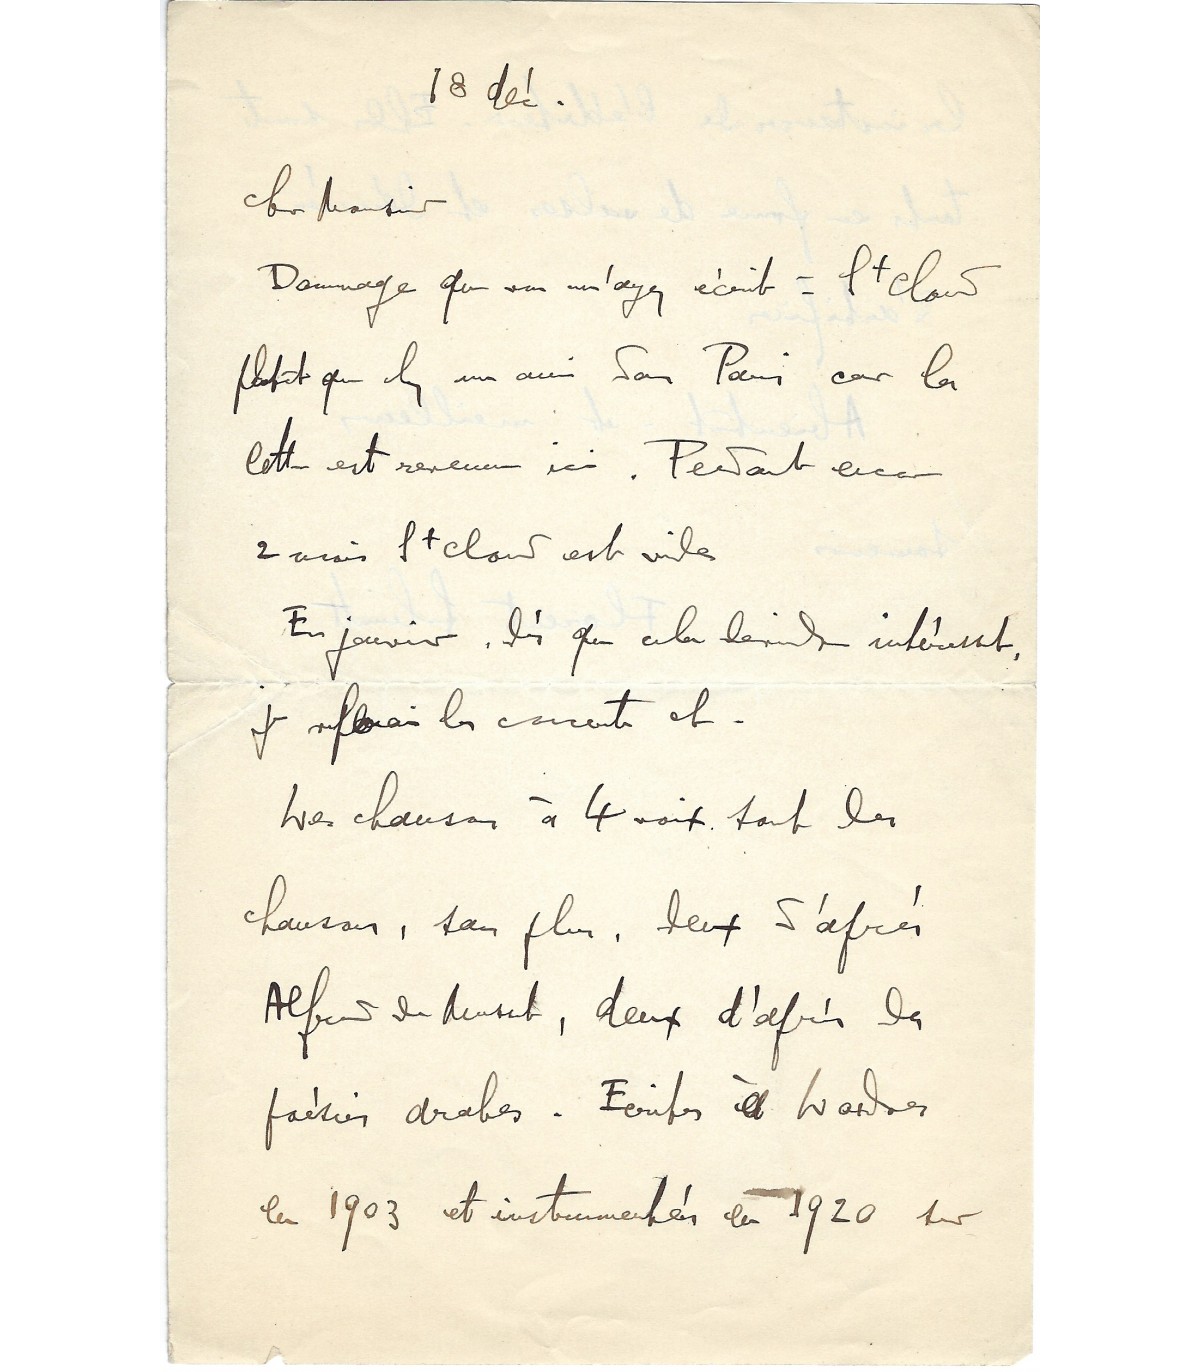 18 déc.
Cher Monsieur
Dommage que vous m'ayez écrit à St Cloud
plutôt que chez un ami dans Paris car la
lettre est revenue ici. Pendant encore
2 mois St Cloud est vide
En janvier, dès que cela deviendra intéressant,
je referai les concerts et -
Les chansons à 4 voix sont des
chansons, sans plus, deux d'après
Alfred de Musset, deux d'après des
poésies arabes. Ecrites à Londres
en 1903 et instrumentées en 1920 sur